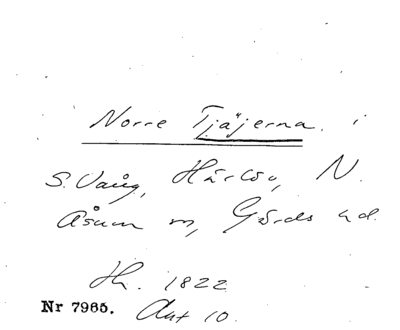 Norre Tjäjerna. i
S. Vång, Härlöv, N.
Åsum sn, Gärds hd.
Lh. 1822
Nr 7965. Akt 10.